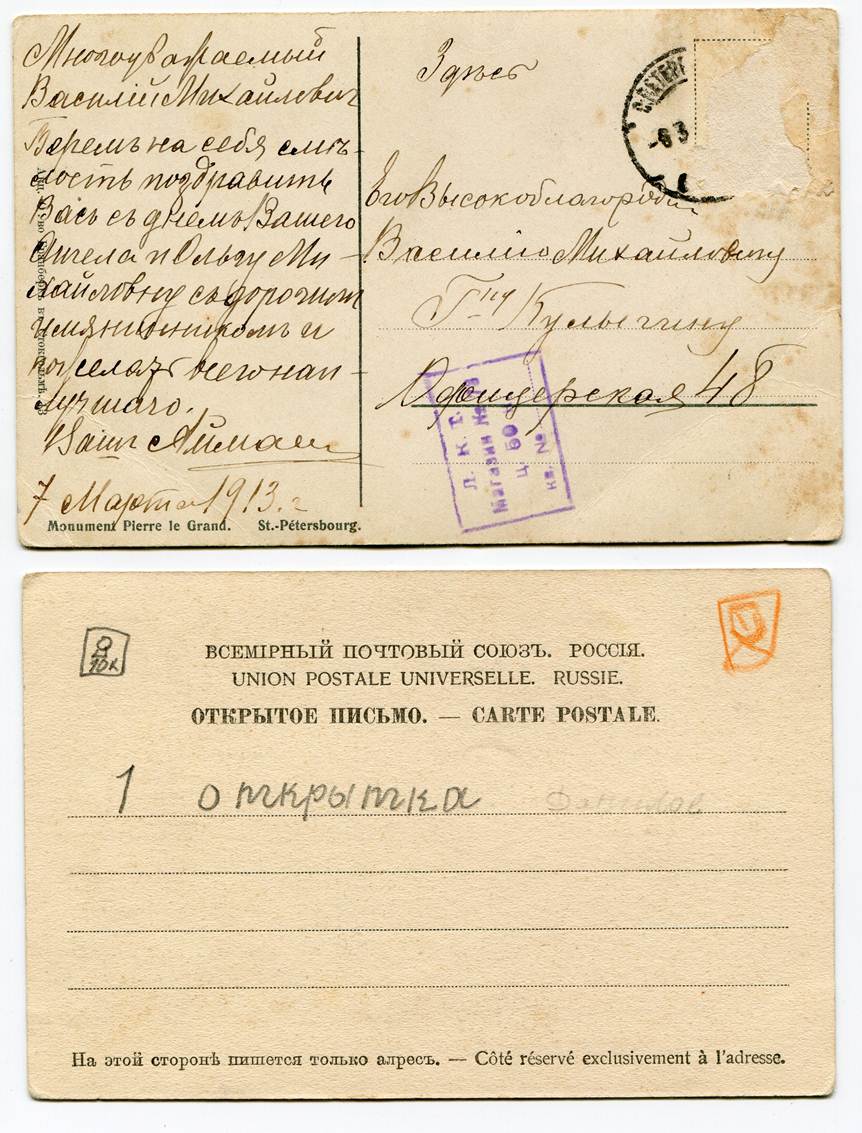 Многоуважаемый
Василій Михайловичъ
Беремъ на себя смѣ-
лость поздравить
Васъ съ днемъ Вашего
Ангела и Ольгу Ми-
хайловну съ дорогимъ
имянинникомъ и
пожелать всего наи-
лучшаго.
Ваши
7 Марта 1913 г
Monument Pierre le Grand. St.-Pétersbourg.
Здѣсь
С.ПЕТЕРБ
-8 3
Его Высокоблагородію
Василію Михайловичу
Г-ну Кулыгину
Офицерская 48
Л. К. Х.
Магазин №
Ц. 50
кв. №
10к
ВСЕМІРНЫЙ ПОЧТОВЫЙ СОЮЗЪ. РОССІЯ.
UNION POSTALE UNIVERSELLE. RUSSIE.
ОТКРЫТОЕ ПИСЬМО. — CARTE POSTALE.
1 открытка
На этой сторонѣ пишется только адресъ. — Côté réservé exclusivement à l'adresse.